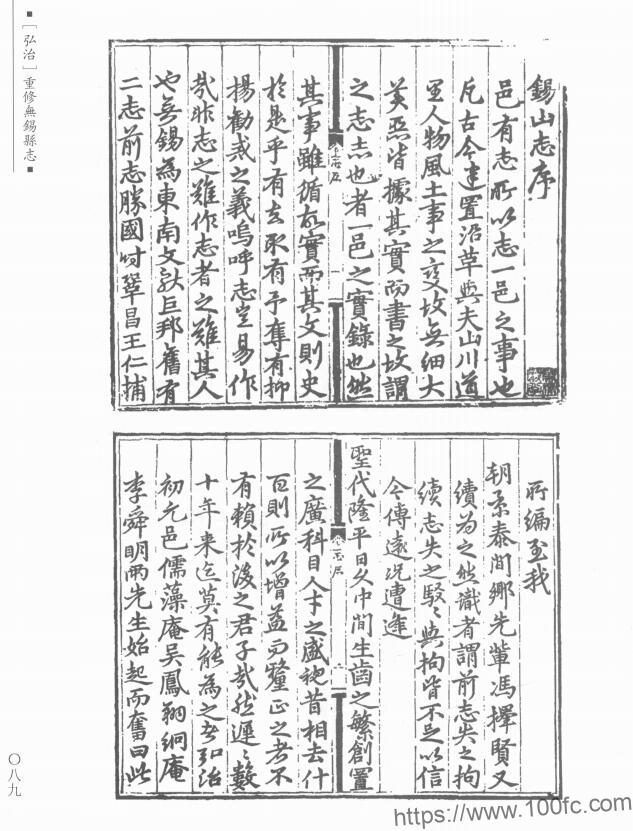 ■［弘治］重修無錫縣志■
錫山志序
邑有志所以志一邑之事也
凡古今建置沿革與夫山川道
里人物風土事之變故無細大
美惡皆據其實而書之故謂
之志志也者一邑之實錄也然
其事雖循故實而其文則史
於是乎有去取有予奪有抑
揚勸戒之義嗚呼志豈易作
哉非志之難作志者之難其人
也無錫為東南文獻巨邦舊有
二志前志勝國時鞏昌王仁輔
所編至我
朝景泰間鄉先輩馮擇賢又
續為之然識者謂前志失之拘
續志失之駁駁與拘皆不足以信
今傳遠況遭逢
聖代隆平日久中間生齒之繁創置
之廣科目人才之盛視昔相去什
百則所以增益而釐正之者不
有賴於後之君子哉然遲遲數
十年來迄莫有能為之者弘治
初元邑儒藻庵吳鳳翔絅庵
李舜明兩先生始起而奮曰此
〇八九
https://www.100fc.com